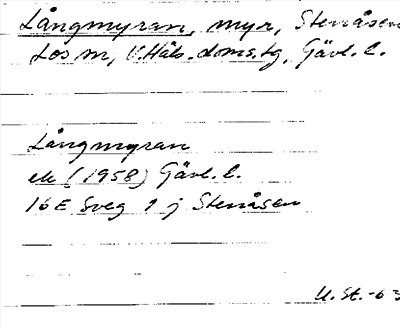 Långmyran, myr, Stenåsen
Los sn, V.Häls. doms.tg, Gävl. l.
Långmyran
ek (1958) Gävl. l.
16E Sveg 1 j Stenåsen
U. St. -63